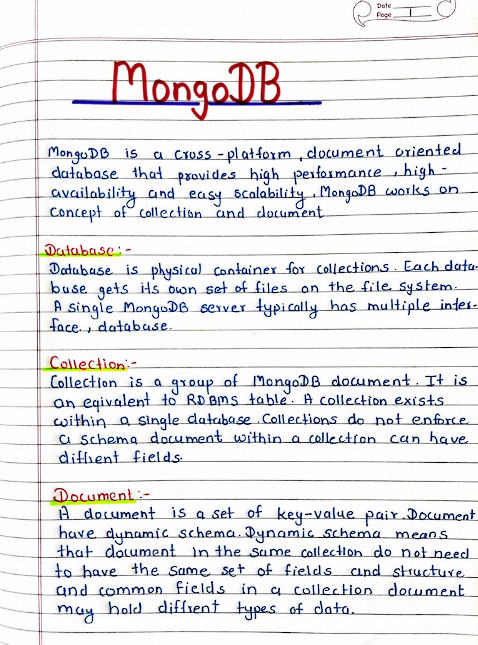 Date
Page 1
MongoDB
MongoDB is a cross-platform, document oriented
database that provides high performance, high-
availability and easy scalability. MongoDB works on
concept of collection and document
Database:-
Database is physical container for collections. Each data-
base gets its own set of files on the file system.
A single MongoDB server typically has multiple inter-
face., database.
Collection:-
Collection is a group of MongoDB document. It is
an eqivalent to RDBMS table. A collection exists
within a single database. Collections do not enforce
a schema document within a collection can have
diffient fields.
Document:-
A document is a set of key-value pair. Document
have dynamic schema. Dynamic schema means
that document in the same collection do not need
to have the same set of fields and structure
and common fields in a collection document
may hold diffrent types of data.